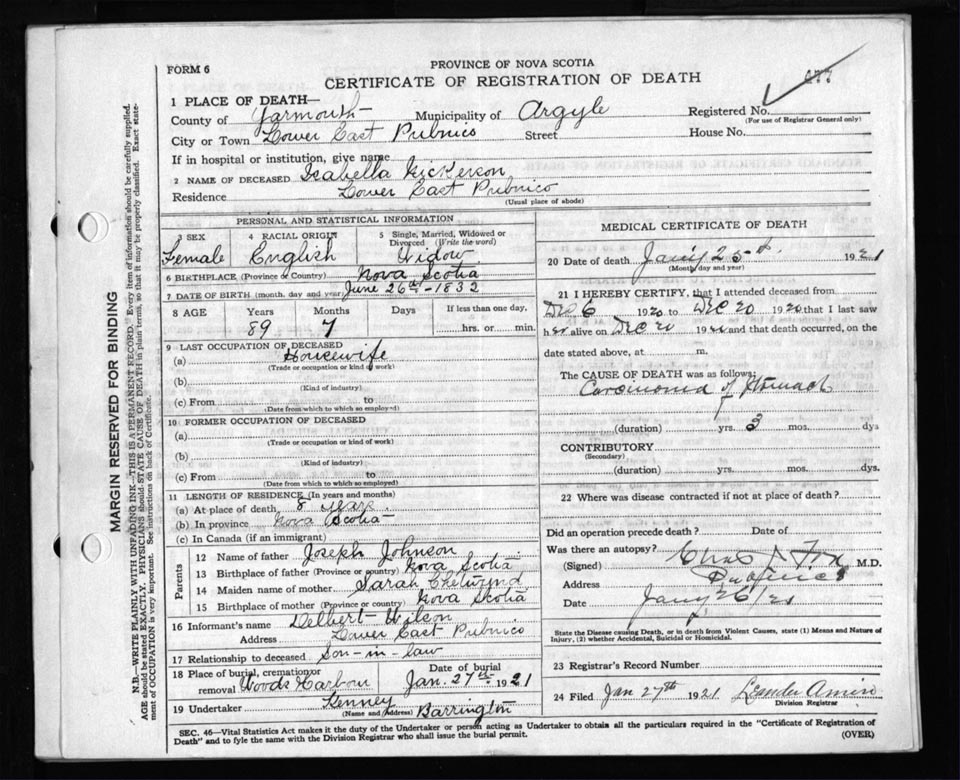 PROVINCE OF NOVA SCOTIA
FORM 6
CERTIFICATE OF REGISTRATION OF DEATH
477
1 PLACE OF DEATH—
County of Yarmouth Municipality of Argyle Registered No.
(For use of Registrar General only)
City or Town Lower East Pubnico Street House No.
If in hospital or institution, give name
2 NAME OF DECEASED Isabella Nickerson
Residence Lower East Pubnico
(Usual place of abode)
PERSONAL AND STATISTICAL INFORMATION
3 SEX 4 RACIAL ORIGIN 5 Single, Married, Widowed or Divorced (Write the word)
Female English Widow
6 BIRTHPLACE (Province or Country) Nova Scotia
7 DATE OF BIRTH (month, day and year) June 26th - 1832
8 AGE Years Months Days If less than one day,
89 7 hrs. or min.
9 LAST OCCUPATION OF DECEASED
(a) Housewife
(Trade or occupation or kind of work)
(b)
(Kind of industry)
(c) From to
(Date from which to which so employed)
10 FORMER OCCUPATION OF DECEASED
(a)
(Trade or occupation or kind of work)
(b)
(Kind of industry)
(c) From to
(Date from which to which so employed)
11 LENGTH OF RESIDENCE (In years and months)
(a) At place of death 8 years
(b) In province Nova Scotia
(c) In Canada (if an immigrant)
Parents
12 Name of father Joseph Johnson
13 Birthplace of father (Province or country) Nova Scotia
14 Maiden name of mother Sarah Chetwynd
15 Birthplace of mother (Province or country) Nova Scotia
16 Informant's name Delbert Wilson
Address Lower East Pubnico
17 Relationship to deceased Son-in-law
18 Place of burial, cremation or removal Woods Harbour Date of burial Jan. 27th 1921
19 Undertaker Kenney Barrington
(Name and Address)
MEDICAL CERTIFICATE OF DEATH
20 Date of death Jany 25th 1921
(Month, day and year)
21 I HEREBY CERTIFY, that I attended deceased from
Dec 6 1920 to Dec 20 1920 that I last saw
her alive on Dec 20 1920 and that death occurred, on the
date stated above, at m.
The CAUSE OF DEATH was as follows:
Carcinoma of Stomach
(duration) yrs. 3 mos. dys
CONTRIBUTORY
(Secondary)
(duration) yrs. mos. dys.
22 Where was disease contracted if not at place of death?
Did an operation precede death? Date of
Was there an autopsy?
(Signed) Chas J Fox M.D.
Address Pubnico
Date Jany 26/21
State the Disease causing Death, or in death from Violent Causes, state (1) Means and Nature of
Injury, (2) whether Accidental, Suicidal or Homicidal.
23 Registrar's Record Number
24 Filed Jan 27th 1921 Leander Amiro
Division Registrar
SEC. 46—Vital Statistics Act makes it the duty of the Undertaker or person acting as Undertaker to obtain all the particulars required in the "Certificate of Registration of
Death" and to fyle the same with the Division Registrar who shall issue the burial permit. (OVER)
MARGIN RESERVED FOR BINDING
N.B.—WRITE PLAINLY WITH UNFADING INK—THIS IS A PERMANENT RECORD. Every item of information should be carefully supplied.
AGE should be stated EXACTLY. PHYSICIANS should STATE CAUSE OF DEATH in plain terms, so that it may be properly classified. Exact state-
ment of OCCUPATION is very important. See instructions on back of Certificate.